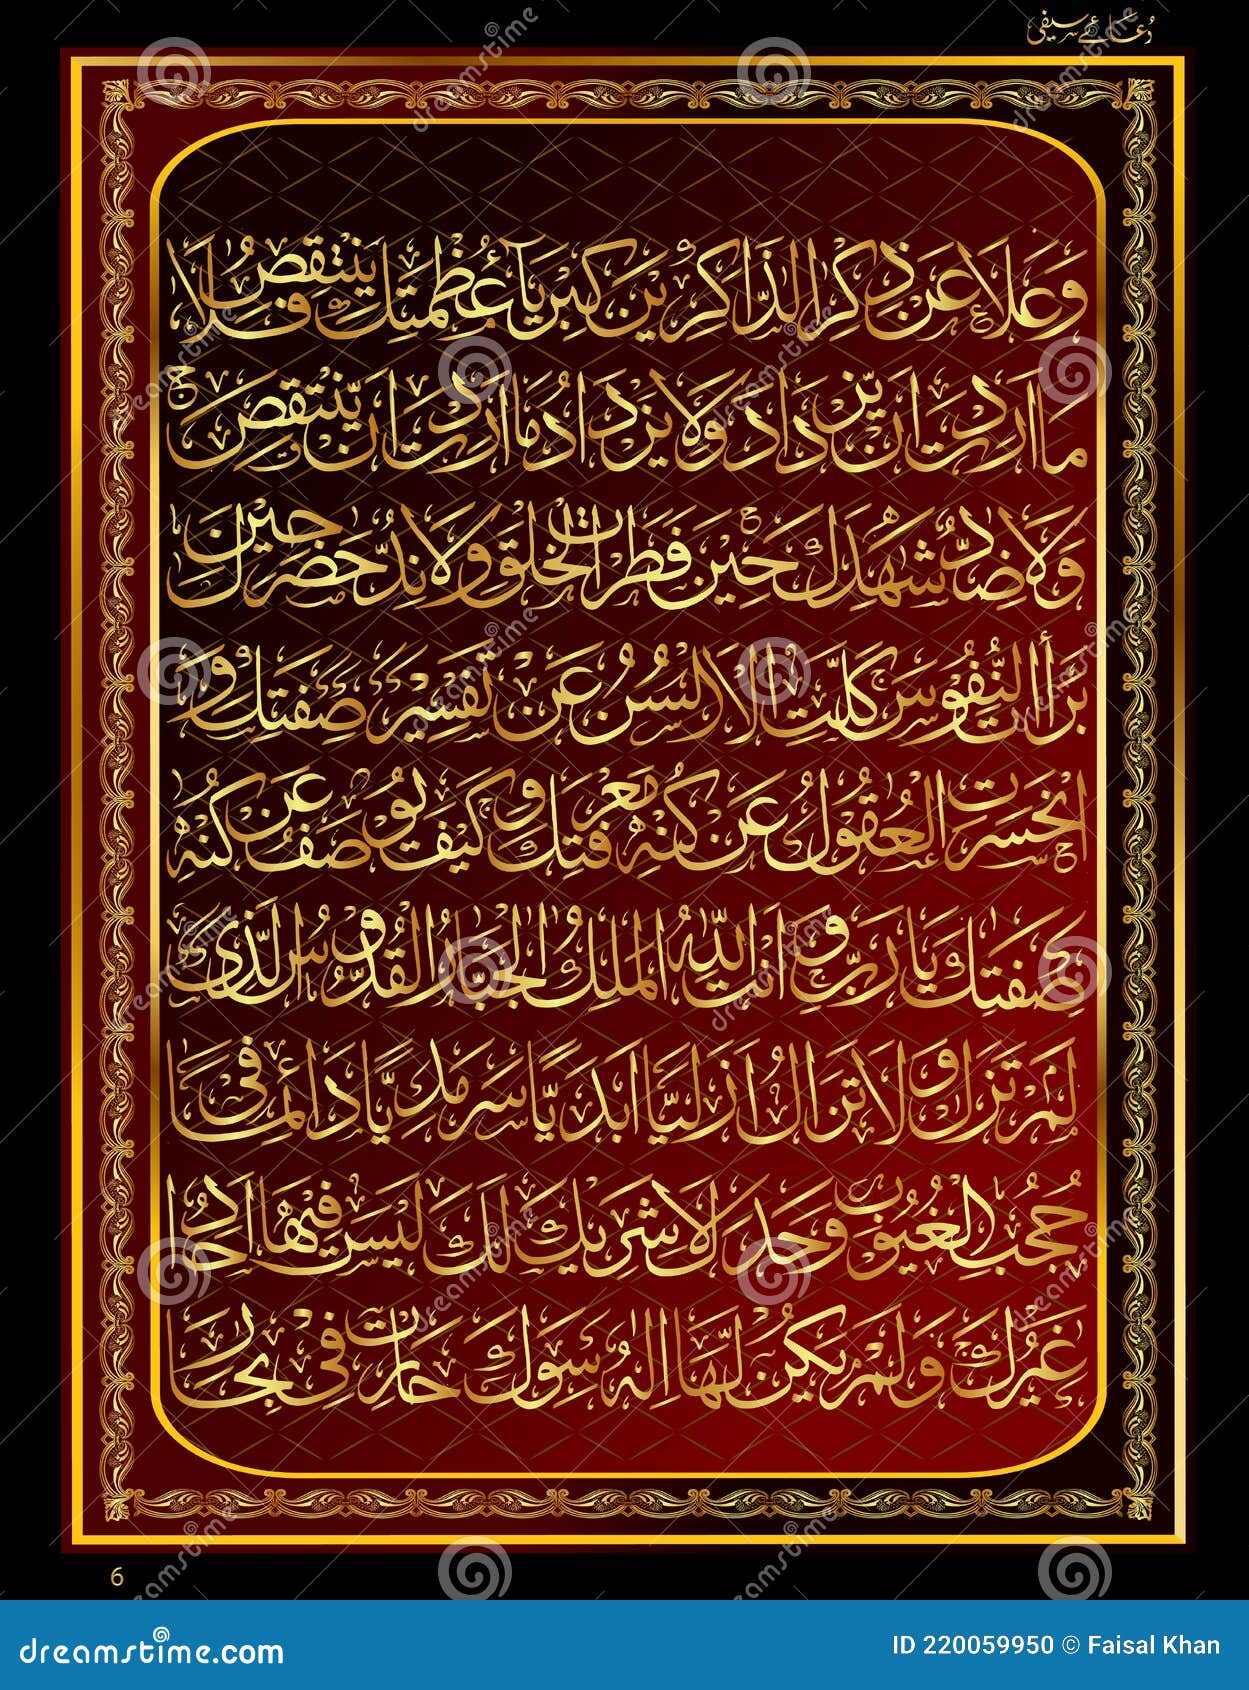 دُعائے سیفی
وَعَلَا عَنْ ذِكْرِ الذَّاكِرِيْنَ كِبْرِيَآءُ عَظَمَتِكَ فَلَا يَنْتَقِصُ
مَا اَرَدْتَ اَنْ يَّزْدَادَ وَلَا يَزْدَادُ مَا اَرَدْتَ اَنْ يَّنْتَقِصَ ج
وَلَا ضِدٌّ شَهِدَكَ حِيْنَ فَطَرْتَ الْخَلْقَ وَلَا نِدٌّ حَضَرَكَ حِيْنَ
بَرَأْتَ النُّفُوْسَ كَلَّتِ الْاَلْسُنُ عَنْ تَفْسِيْرِ صِفَتِكَ وَ
انْحَسَرَتِ الْعُقُوْلُ عَنْ كُنْهِ مَعْرِفَتِكَ وَكَيْفَ يُوْصَفُ عَنْ كُنْهِ
صِفَتِكَ يَا رَبِّ وَاَنْتَ اللّٰهُ الْمَلِكُ الْجَبَّارُ الْقُدُّوْسُ الَّذِیْ
لَمْ تَزَلْ وَلَا تَزَالُ اَزَلِيًّا اَبَدِيًّا سَرْمَدِيًّا دَائِمًا فِیْ
حُجُبِ الْغُيُوْبِ وَحْدَكَ لَا شَرِيْكَ لَكَ لَيْسَ فِيْهَا اَحَدٌ
غَيْرُكَ وَلَمْ يَكُنْ لَّهَا اِلٰهٌ سِوَاكَ حَارَتْ فِیْ بِحَارِ
6
dreamstime.com
ID 220059950 © Faisal Khan